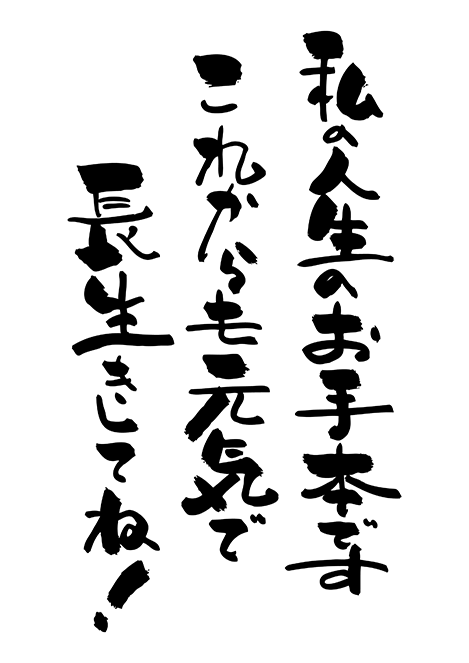 私の人生のお手本です
これからも元気で
長生きしてね!